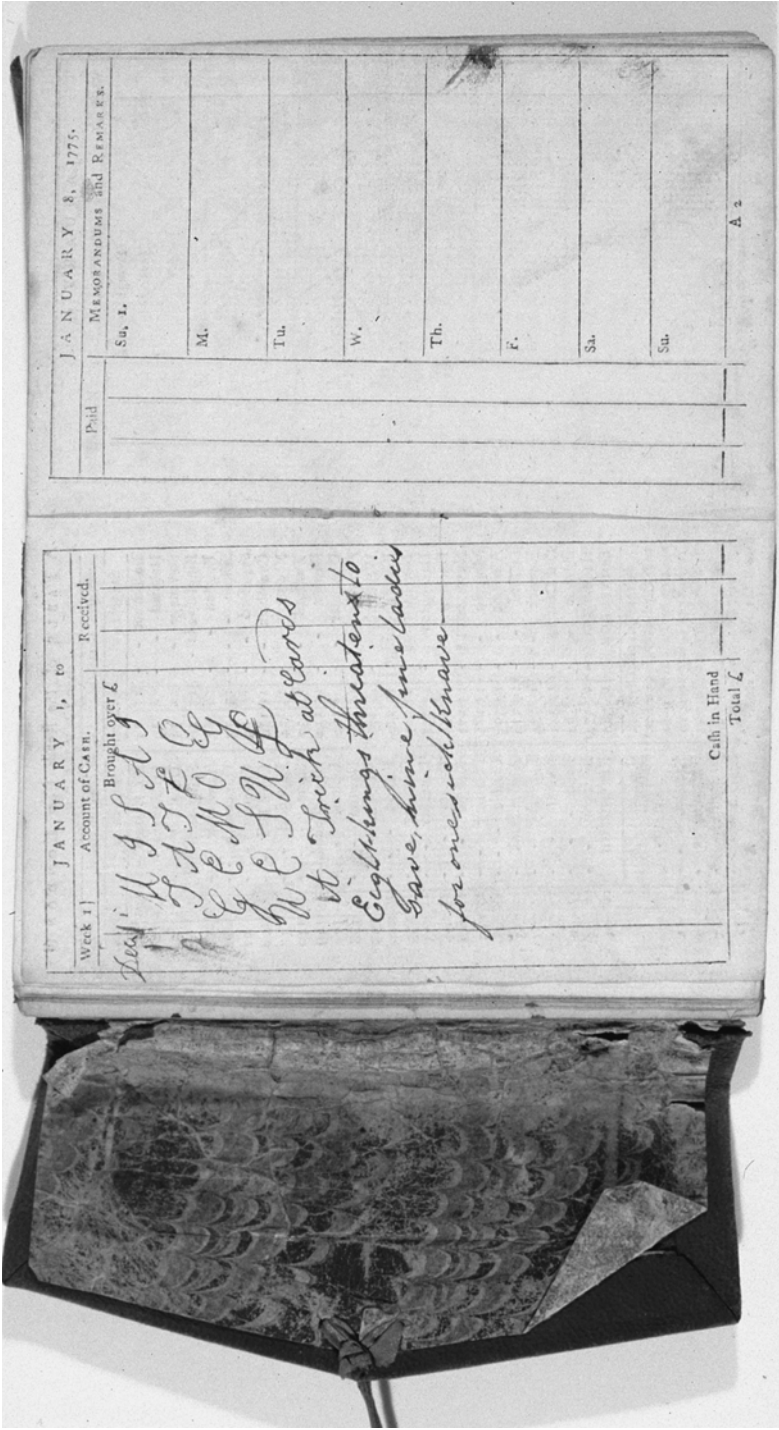 JANUARY 1, to
Week 1] Account of CASH. Received.
Brought over £
M I S A I
T A T L O
G E M O L
V E S U L
Trick at Cards
Eight kings threatens to
Save, nine fine ladies
for one sick Knave
Cash in Hand
Total £
JANUARY 8, 1775.
Paid MEMORANDUMS and REMARKS.
Su. 1.
M.
Tu.
W.
Th.
F.
Sa.
Su.
A 2